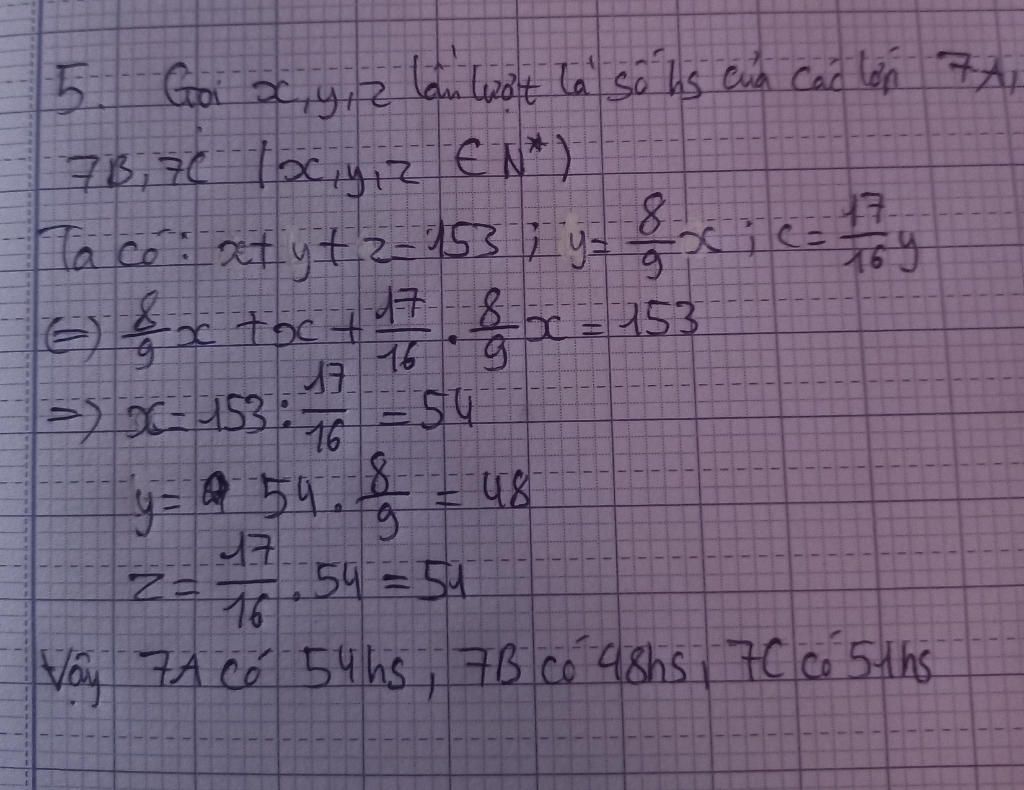 5. Gọi x, y, z lần lượt là số hs của các lớp 7A,
7B, 7C (x, y, z ∈ N*)
Ta có: x + y + z = 153 ; y = 8/9 x ; c = 17/16 y
(=) 8/9 x + x + 17/16 . 8/9 x = 153
=) x = 153 : 17/16 = 54
y = 54 . 8/9 = 48
z = 17/16 . 54 = 51
Vậy 7A có 54hs, 7B có 48hs, 7C có 51hs